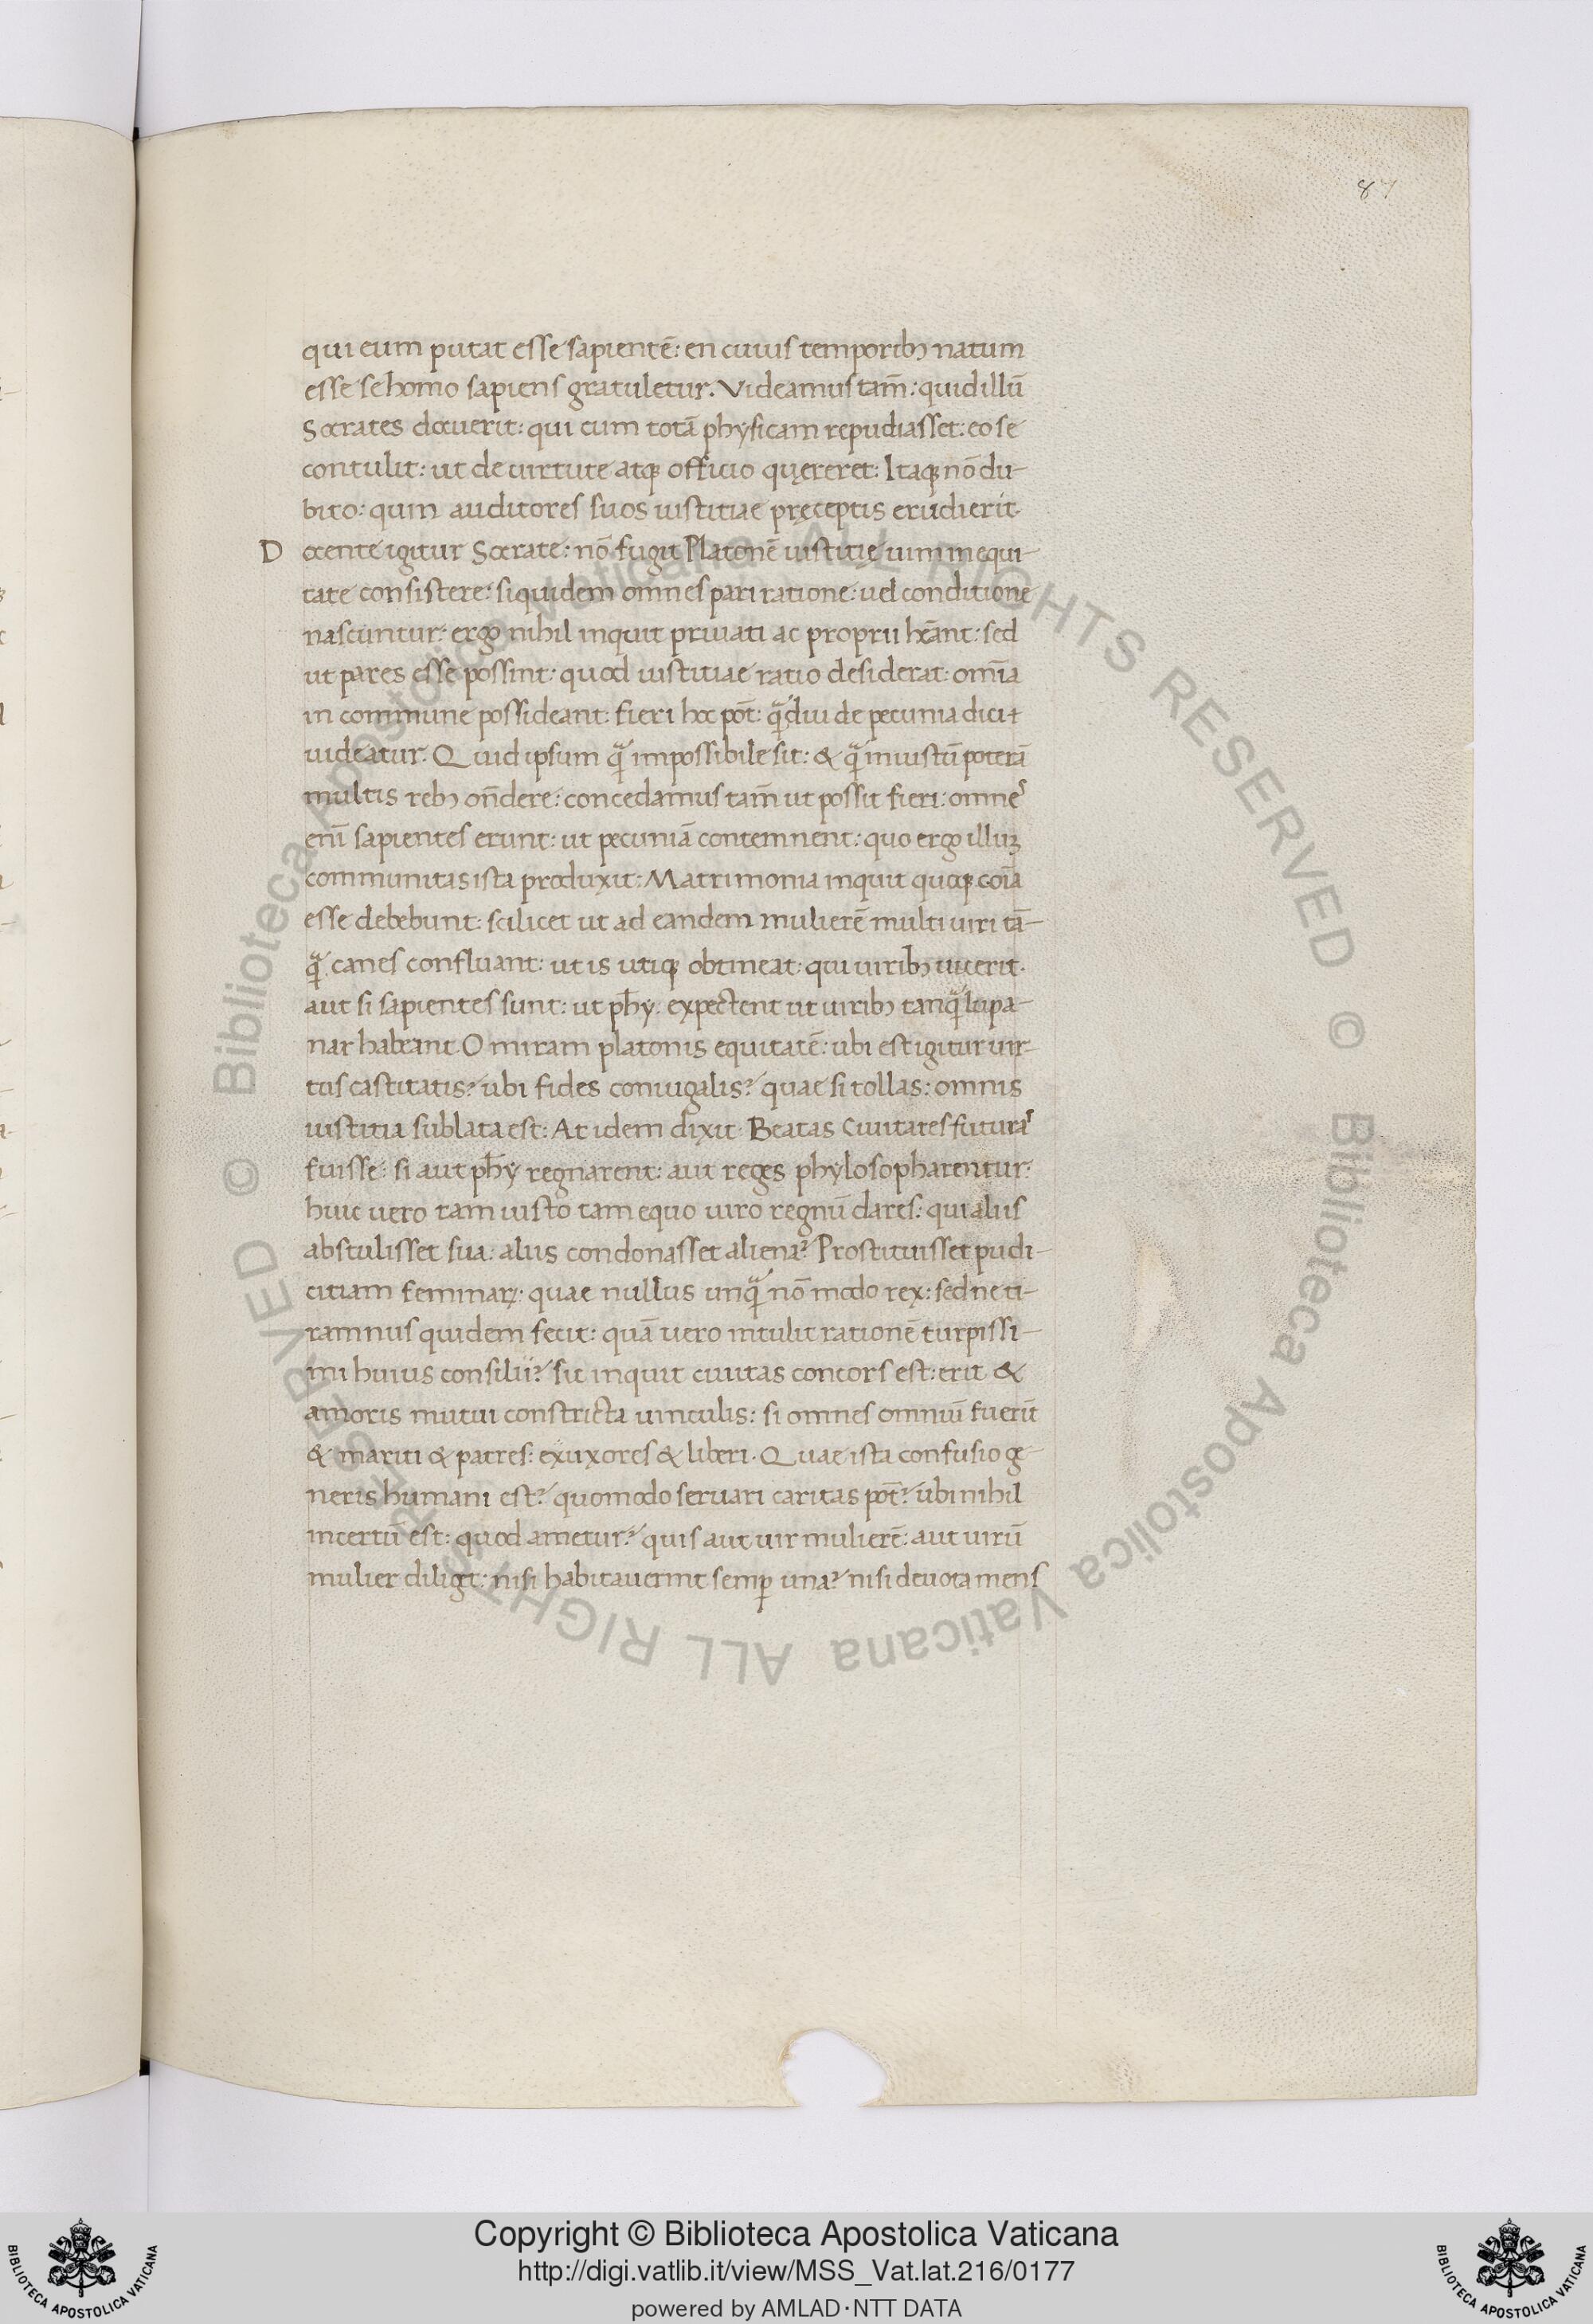 87
qui eum putat esse sapientē: en cuius temporibꝫ natum
esse se homo sapiens gratuletur. Videamus tam̄: quid illū
Socrates docuerit: qui cum totā physicam repudiasset: eo se
contulit: ut de uirtute atqꝫ officio quęreret: Itaqꝫ nō du-
bito: quin auditores suos iustitiae pręceptis erudierit.
Docente igitur Socrate: nō fugit Platonē iustitię uim in equi-
tate consistere: siquidem omnes pari ratione: uel conditione
nascuntur: ergo nihil inquit priuati ac proprii hēant: sed
ut pares esse possint: quod iustitiae ratio desiderat: omīa
in commune possideant: fieri hoc pōt: qͣ̄diu de pecunia dici
uideatur. Quid ipsum qͣ̄ impossibile sit: & qͣ̄ iniustū poterā
multis rebꝫ ōndere: concedamus tam̄ ut possit fieri: omnes
enī sapientes erunt: ut pecuniā contemnent: quo ergo illuꝫ
communitas ista produxit: Matrimonia inquit quoqꝫ coīa
esse debebunt: scilicet ut ad eandem mulierē multi uiri tā-
qͣ̄ canes confluant: ut is utiqꝫ obtineat: qui uiribꝫ uicerit.
aut si sapientes sunt: ut ph̄y. expectent ut uiribꝫ tanqͣ̄ lupa-
nar habeant. O miram platonis equitatē: ubi est igitur uir-
tus castitatis? ubi fides coniugalis? quae si tollas: omnis
iustitia sublata est: At idem dixit: Beatas Ciuitates futuras
fuisse: si aut ph̄y regnarent: aut reges phylosopharentur:
huic uero tam iusto tam equo uiro regnū dares: qui aliis
abstulisset sua: aliis condonasset aliena? Prostituisset pudi-
citiam feminaꝝ: quae nullus unqͣ̄ nō modo rex: sed ne ti-
ramnus quidem fecit: quā uero intulit rationē turpissi-
mi huius consilii? sic inquit ciuitas concors est: erit &
amoris mutui constricta uinculis: si omnes omniū fuerīt
& mariti & patres: & uxores & liberi. Quae ista confusio ge-
neris humani est? quomodo seruari caritas pōt? ubi nihil
incertū est: quod ametur? quis aut uir mulierē: aut uirū
mulier diliget: nisi habitauerint semꝑ una? nisi deuota mens
Copyright © Biblioteca Apostolica Vaticana
http://digi.vatlib.it/view/MSS_Vat.lat.216/0177
powered by AMLAD·NTT DATA
BIBLIOTECA APOSTOLICA VATICANA
BIBLIOTECA APOSTOLICA VATICANA
© Biblioteca Apostolica Vaticana ALL RIGHTS RESERVED © Biblioteca Apostolica Vaticana ALL RIGHTS RESERVED